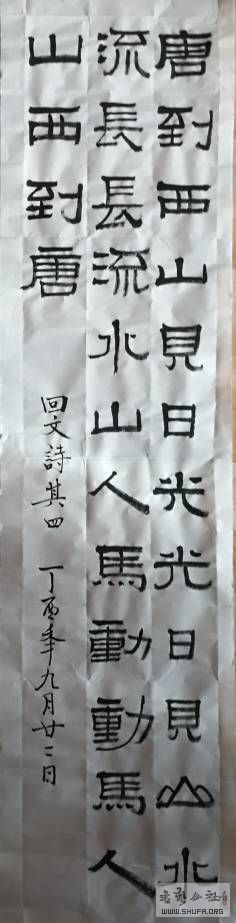 唐到西山見日光光日見山水
流長長流水山人馬動動馬人
山西到唐
回文詩其四 丁酉年九月廿二日
書藝公社
WWW.SHUFA.ORG